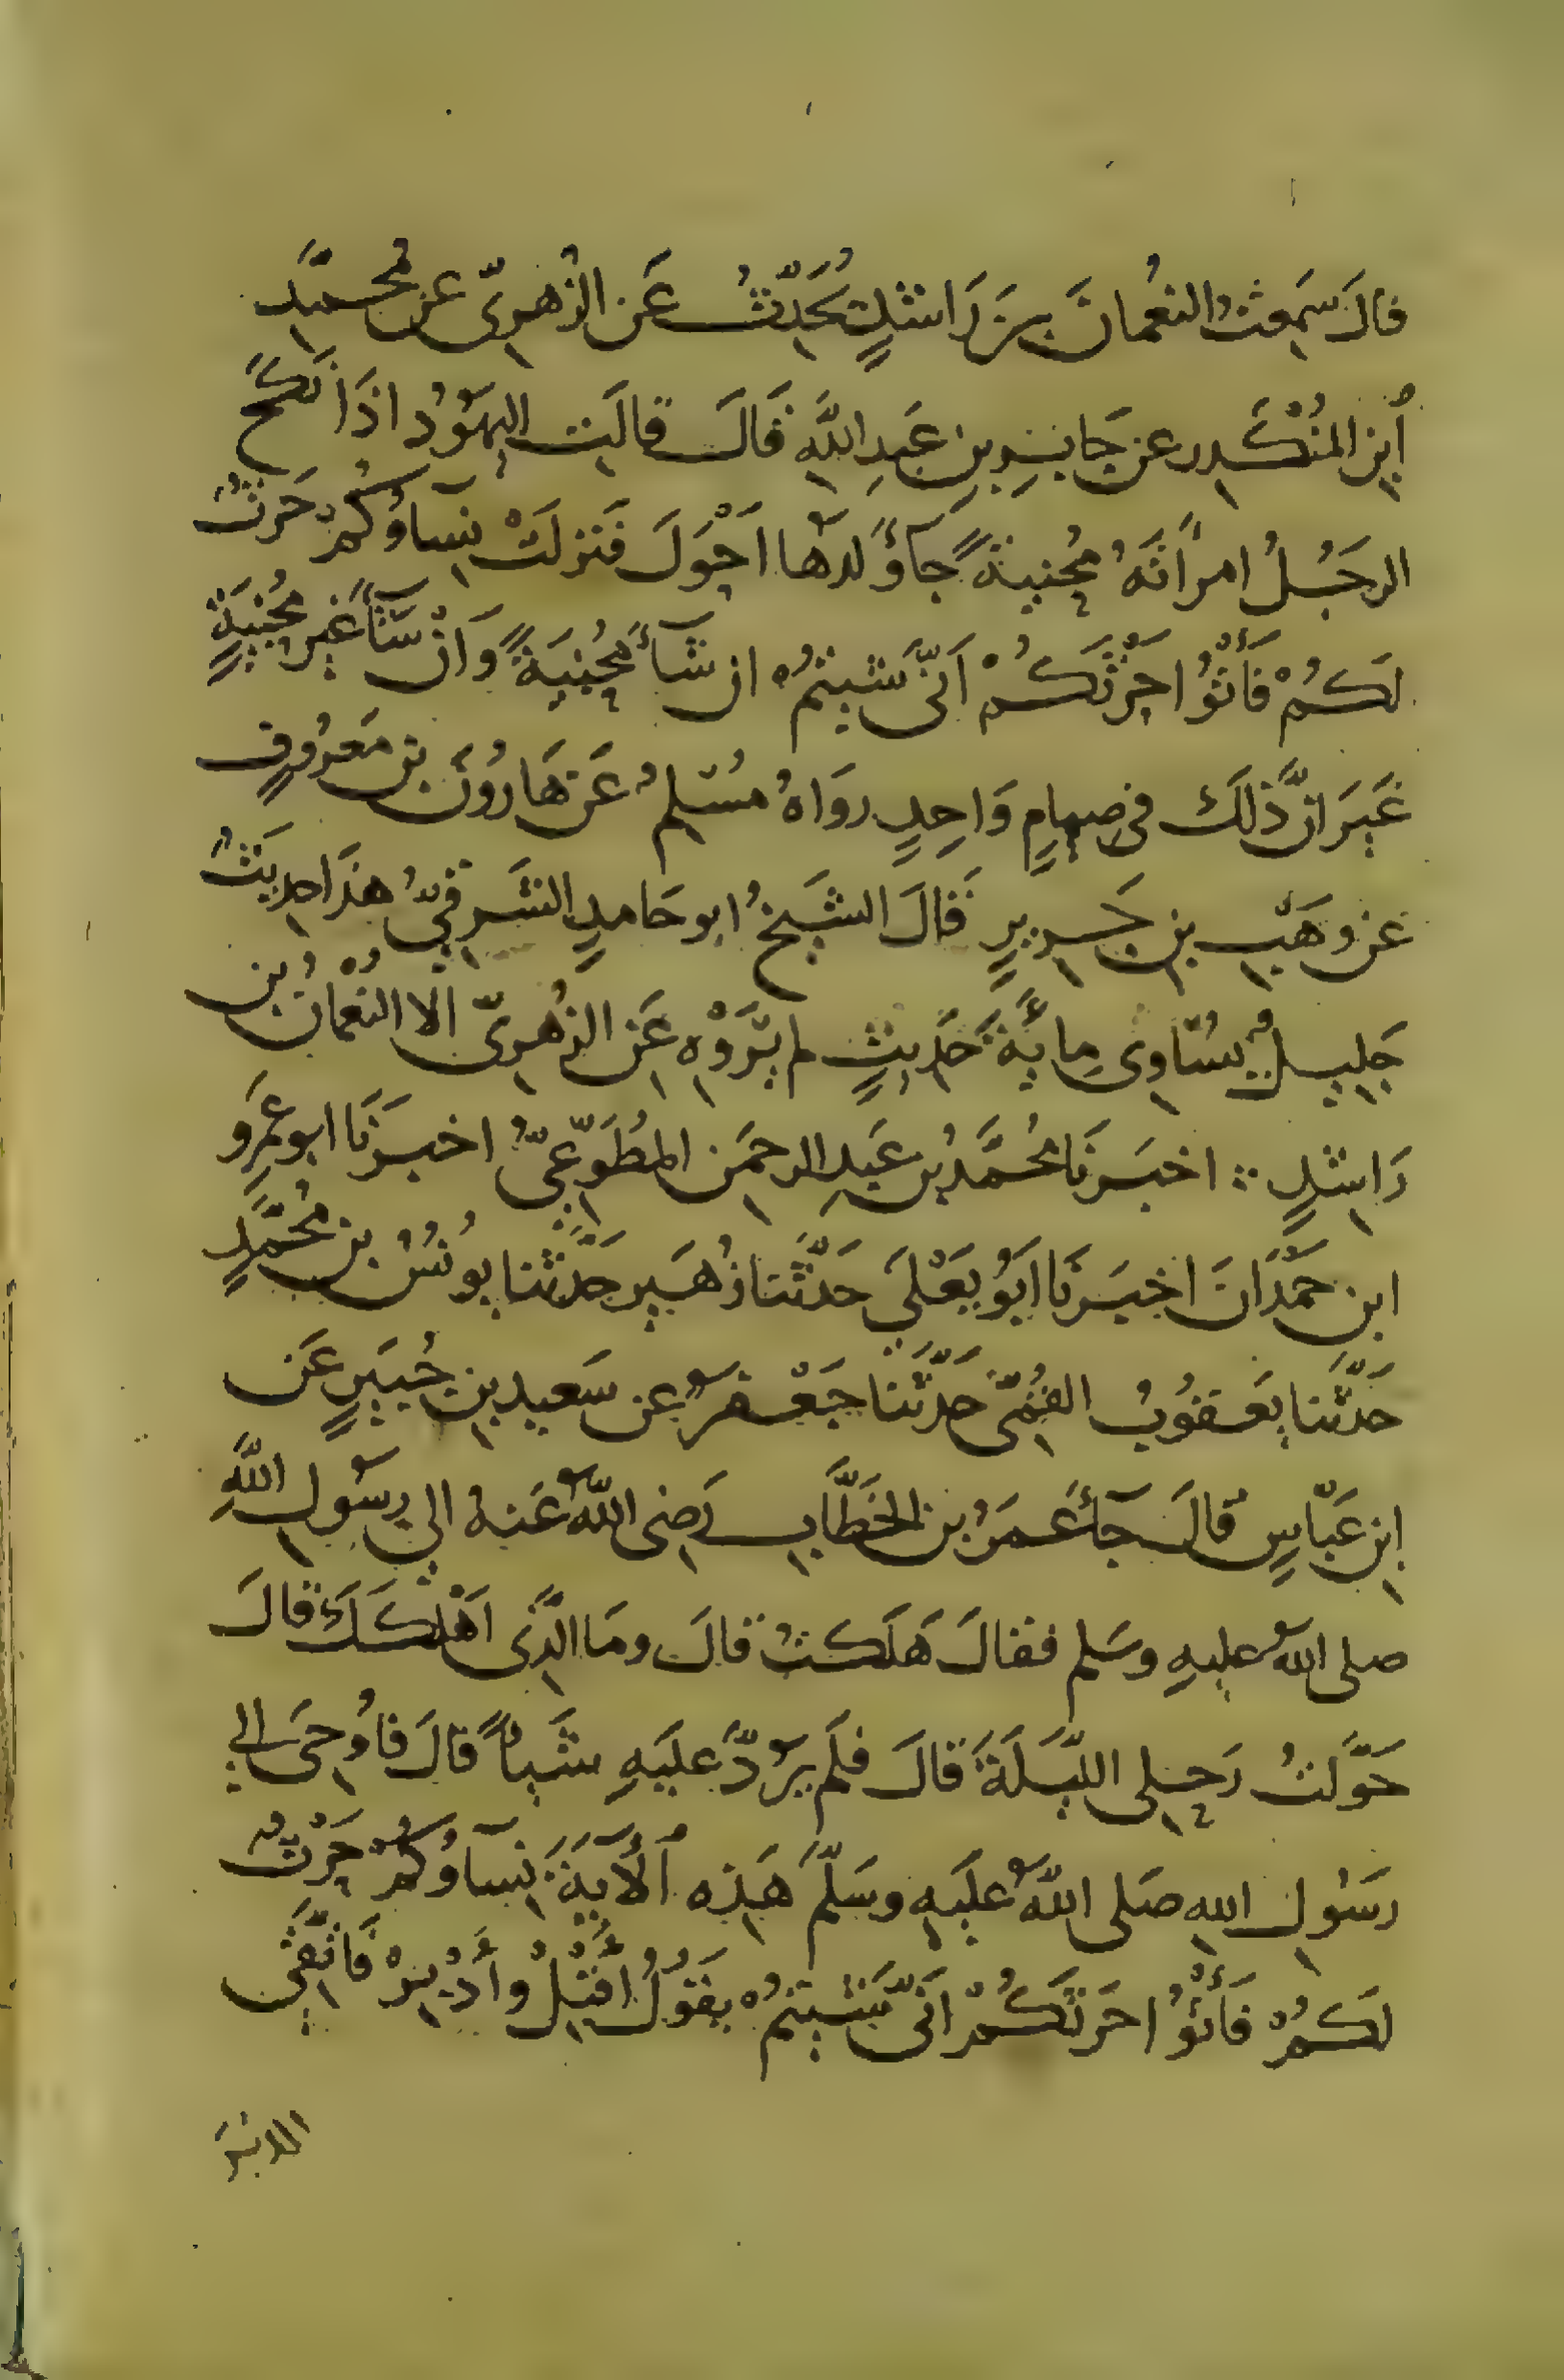 قَالَ سَمِعْتُ النُعمانَ بنَ رَاشِدٍ يُحَدِّثُ عَن الزُهرِىّ عن مُحَمَّد
اُبنِ المُنْكَدِر عن جَابِرِ بنِ عَبدِ اللّٰهِ قَالَ قالَتِ اليهُودُ اذَا نَكَحَ
الرجُلُ امرأتَهُ مُجَبِّيةً جَاءَ وَلَدُهَا اَحْوَلَ فَنزلَتْ نِسَاؤُكُمْ حَرثٌ
لَكُمْ فَأْتُوْا حَرْثَكُمْ اَنّىٰ شِيتُمْ ان شَآءَ مُجَبِّيَةً وَاِنْ شَآءَ غَيرَ مُجَبِّيَةٍ
غَيرَ انَّ ذٰلَكَ فى صِمامٍ وَاحِدٍ روَاهُ مُسْلِمٌ عَن هَارُونَ بن مَعرُوفٍ
عَن وَهَبِ بنِ جَرِيرٍ قَالَ الشَيخُ ابو حَامدٍ الشَرقِىُّ هذَا حديثٌ
جَلِيلٌ يُسَاوِى مِايَةَ حَدِيثٍ لم يَرْوِهِ عَنِ الزُهرِىّ الا النُعْمانُ بُن
رَاشدٍ ∴ اخبَرنَا مُحمَّدُ بن عَبدِ الرحمَنِ المُطَوِّعِىُّ اخبَرنَا ابو عَمرِو
ابن حمَدَانَ اخبَرنَا ابَوُ يَعْلَي حَدثَّنَا زُهَير حَدثَّنا يُونُسُ بن مُحَمَّدٍ
حَدثَّنا يَعقُوبُ القُمِّىّ حَدثَّنا جَعْفرٌ عن سَعيدِ بنِ جُبَيرٍ عَن
ابنِ عَبّاسٍ قالَ جَآءَ عُمَرُ بن الخَطَّابِ رَضِى اللّٰهُ عَنهُ الي رسَولِ اللّٰهِ
صلى اللهُ عليهِ وسَلم فقالَ هَلَكتُ قالَ ومَا الّذِى اَهْلَكَكَ قالَ
حَوَّلتُ رَحلِى اللَّيلَةَ قالَ فلَم يَرُدَّ عليَهِ شَيأً قالَ فاُوحِىَ الي
رسَوُلِ اللهِ صَلى اللّٰهُ عليَهِ وسَلَّمَ هَذِه اْلأيَةَ نِسَاؤُكُمْ حَرْثٌ
لَكُمْ فَأْتُوْا حَرثَكُمْ اَنّىٰ شِيتُمْ يقَوُلُ اَقْبِلْ واَدْبِرْ فَاتَّقِى
الدبر